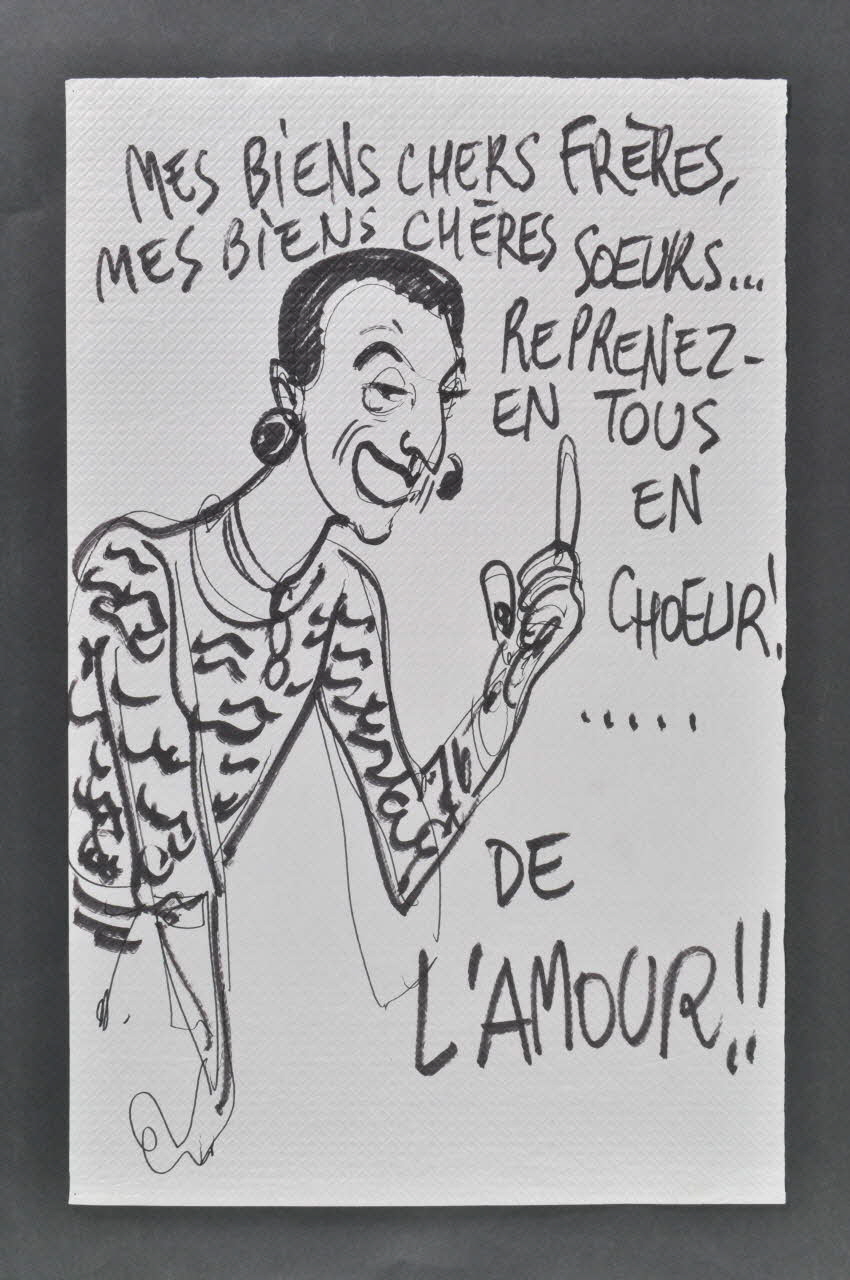 MES BiENS CHERS FRÈRES,
MES BiENS CHÈRES SOEURS...
REPRENEZ-
EN TOUS
EN
CHOEUR!
.....
DE
L'AMOUR!!